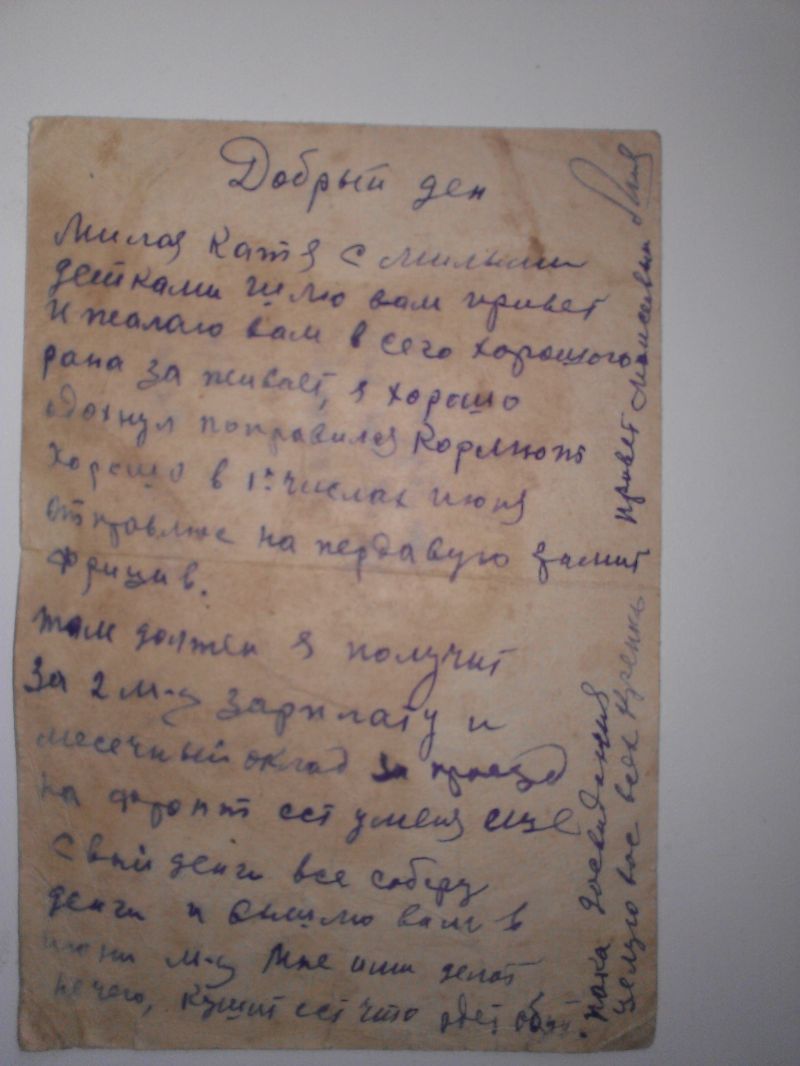 Добрый ден
Милая Катя с милыми
детками шлю вам привет
и жалаю вам всего хорошого
рана заживает, я хорошо
одохнул поправился Кормют
хорошо в 1х числах июня
отправлюс на передавую
Фрицив.
там должен я получит
за 2 м-ц зарплату и
месечный оклад за проезд
на фронт ест уменя еще
свои денги все соберу
денги и вышлю вам в
июни м-ц мне ими делат
нечего, кушит ест что
пока досвидания
целую вас всех крепко
привет